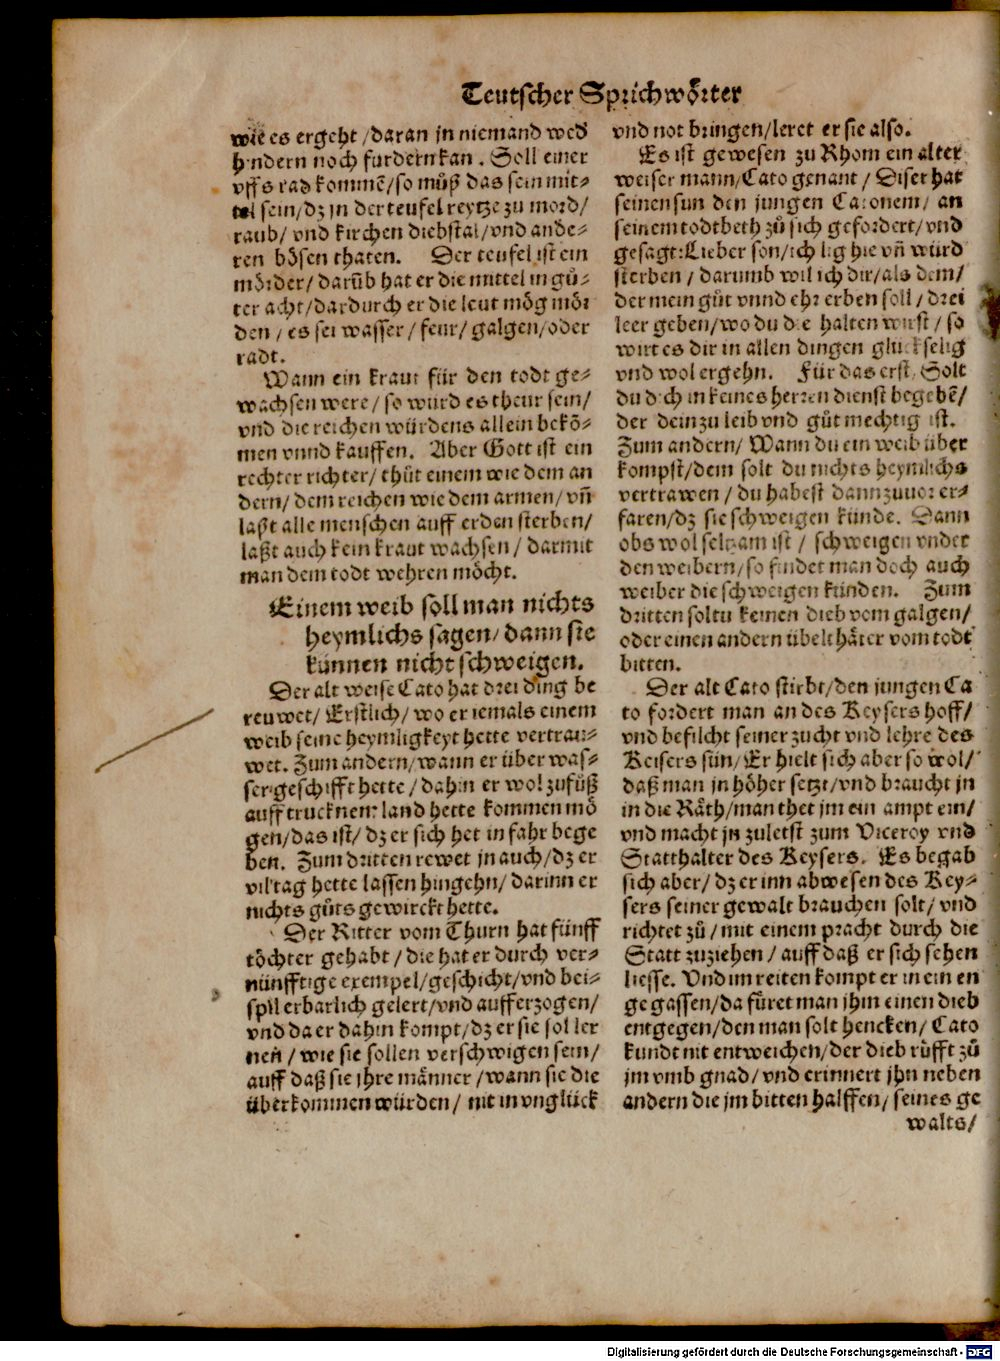 Teutscher Sprichwörter
wie es ergeht /daran jn niemand wed
hyndern noch fürdern kan . Soll einer
vffs rad kommē/so müß das sein mit⸗
tel sein/dz jn der teufel reytze zu mord/
raub/ vnd kirchen diebstal/vnd ande⸗
ren bösen thaten. Der teufel ist ein
mörder/ darūb hat er die mittel in gů⸗
ter acht/dardurch er die leut mög mör
den / es sei wasser / feur/ galgen/oder
radt.
Wann ein kraut für den todt ge⸗
wachsen were/ so würd es theur sein/
vnd die reichen würdens allein bekö⸗
men vnnd kauffen. Aber Gott ist ein
rechter richter/ thůt einem wie dem an
dern/ dem reichen wie dem armen/ vñ
laßt alle menschen auff erden sterben/
laßt auch kein kraut wachsen / darmit
man dem todt wehren möcht.
Einem weib soll man nichts
heymlichs sagen/ dann sie
künnen nicht schweigen.
Der alt weise Cato hat drei ding be
reuwet/ Erstlich/ wo er iemals einem
weib seine heymligkeyt hette vertrau⸗
wet. Zum andern/ wann er über was⸗
ser geschifft hette / dahin er wol zufůß
auff trucknem land hette kommen mö
gen/das ist/ dz er sich het in fahr bege
ben. Zum dritten rewet jn auch/dz er
vil tag hette lassen hingehn/ darinn er
nichts gůts gewirckt hette.
Der Ritter vom Thurn hat fünff
töchter gehabt / die hat er durch ver⸗
nünfftige exempel/geschicht/vnd bei⸗
spil erbarlich gelert/vnd aufferzogen/
vnd da er dahin kompt/dz er sie sol ler
nen / wie sie sollen verschwigen sein/
auff daß sie jhre männer /wann sie die
überkommen würden/ nit in vnglück
vnd not bringen/leret er sie also.
Es ist gewesen zu Rhom ein alter
weiser mann/Cato genant / Diser hat
seinen sun den jungen Catonem/ an
seinem todtbeth zů sich gefordert/vnd
gesagt: Lieber son/ich lig hie vñ würd
sterben / darumb wil ich dir/als dem/
der mein gůt vnnd ehr erben soll / drei
leer geben/wo du die halten wirst / so
wirt es dir in allen dingen glückselig
vnd wol ergehn. Für das erst/ Solt
du dich in keines herren dienst begebē/
der dein zu leib vnd gůt mechtig ist.
Zum andern/ Wann du ein weib über
kompst/dem solt du nichts heymlichs
vertrawen / du habest dann zuuor er⸗
faren/dz sie schweigen künde. Dann
obs wol seltzam ist / schweigen vnder
den weibern/so findet man doch auch
weiber die schweigen künden. Zum
dritten soltu keinen dieb vom galgen/
oder einen andern übelthäter vom todt
bitten.
Der alt Cato stirbt/den jungen Ca
to fordert man an des Keysers hoff/
vnd befilcht seiner zucht vnd lehre des
Keisers sün/Er hielt sich aber so wol/
daß man jn höher setzt/vnd braucht jn
in die Räth/man thet jm ein ampt ein/
vnd macht jn zuletst zum Viceroy vnd
Statthalter des Keysers. Es begab
sich aber/ dz er inn abwesen des Key⸗
sers seiner gewalt brauchen solt/ vnd
richtet zů / mit einem pracht durch die
Statt zuziehen / auff daß er sich sehen
liesse. Vnd im reiten kompt er in ein en
ge gassen/da füret man jhm einen dieb
entgegen/den man solt hencken/ Cato
kundt nit entweichen/der dieb růfft zů
jm vmb gnad/ vnd erinnert jhn neben
andern die jm bitten halffen/ seines ge
walts/
Digitalisierung gefördert durch die Deutsche Forschungsgemeinschaft - DFG